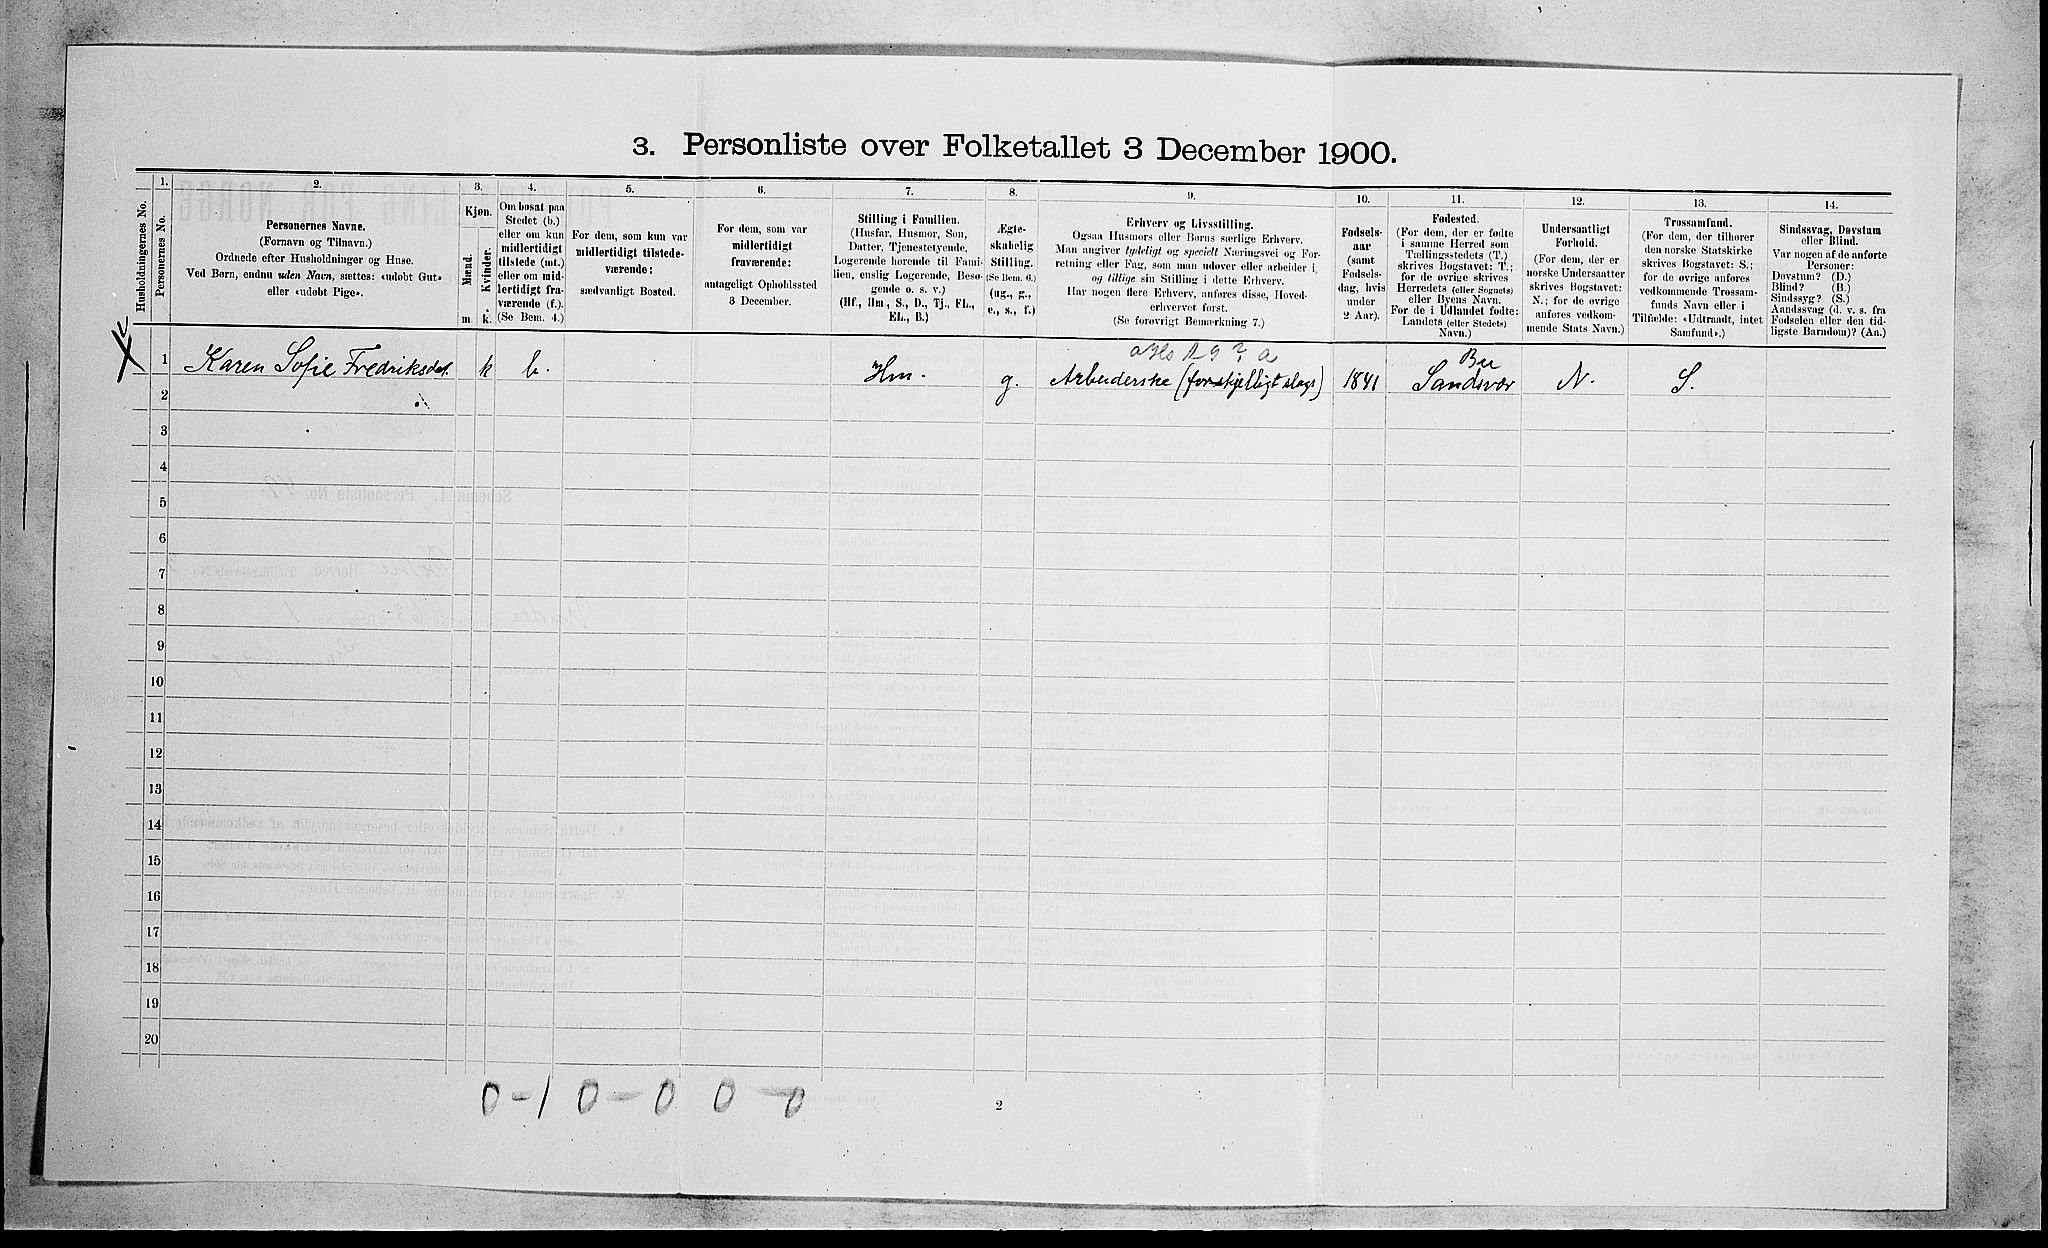 3. Personliste over Folketallet 3 December 1900.
Husholdningernes No.
1.
Personernes No.
2.
Personernes Navne.
(Fornavn og Tilnavn.)
Ordnede efter Husholdninger og Huse.
Ved Børn, endnu uden Navn, sættes: «udøbt Gut»
eller «udøbt Pige».
3.
Kjøn.
Mænd.
Kvinder.
m.
k.
4.
Om bosat paa
Stedet (b.)
eller om kun
midlertidigt
tilstede (mt.)
eller om mid-
lertidigt fra-
værende (f.).
(Se Bem. 4.)
5.
For dem, som kun var
midlertidigt tilstede-
værende:
sædvanligt Bosted.
6.
For dem, som var
midlertidigt
fraværende:
antageligt Opholdssted
3 December.
7.
Stilling i Familien.
(Husfar, Husmor, Søn,
Datter, Tjenestetyende,
Logerende hørende til Fami-
lien, enslig Logerende, Besø-
gende o. s. v.)
(Hf., Hm., S., D., Tj., FL.,
EL., B.)
8.
Ægte-
skabelig
Stilling.
(Se Bem. 6.)
(ug., g.,
e., s., f.)
9.
Erhverv og Livsstilling.
Ogsaa Husmors eller Børns særlige Erhverv.
Man angiver tydeligt og specielt Næringsvei og For-
retning eller Fag, som man udøver eller arbeider i,
og tillige sin Stilling i dette Erhverv.
Har nogen flere Erhverv, anføres disse, Hoved-
erhvervet først.
(Se forøvrigt Bemærkning 7.)
10.
Fødsels-
aar
(samt
Fødsels-
dag, hvis
under
2 Aar).
11.
Fødested.
(For dem, der er fødte
i samme Herred som
Tællingsstedets (T.)
skrives Bogstavet: T.;
for de øvrige skrives
Herredets (eller Sognets)
eller Byens Navn.
For de i Udlandet fødte:
Landets (eller Stedets)
Navn.)
12.
Undersaatligt
Forhold.
(For dem, der er
norske Undersaatter
skrives Bogstavet:
N.; for de øvrige
anføres vedkom-
mende Stats Navn.)
13.
Trossamfund.
(For dem, der tilhører
den norske Statskirke
skrives Bogstavet: S.;
for de øvrige anføres
vedkommende Trossam-
funds Navn eller i
Tilfælde: «Udtraadt, intet
Samfund».)
14.
Sindssvag, Døvstum
eller Blind.
Var nogen af de anførte
Personer:
Døvstum? (D.)
Blind? (B.)
Sindssyg? (S.)
Aandssvag (d. v. s. fra
Fødselen eller den tid-
ligste Barndom)? (Aa.)
1 Karen Sofie Fredriksdat. k b. Hm. g. Arbeiderske (forskjelligt slags) 1841 Sandsvær N. S.
2
3
4
5
6
7
8
9
10
11
12
13
14
15
16
17
18
19
20
0-1 0-0 0-0
2